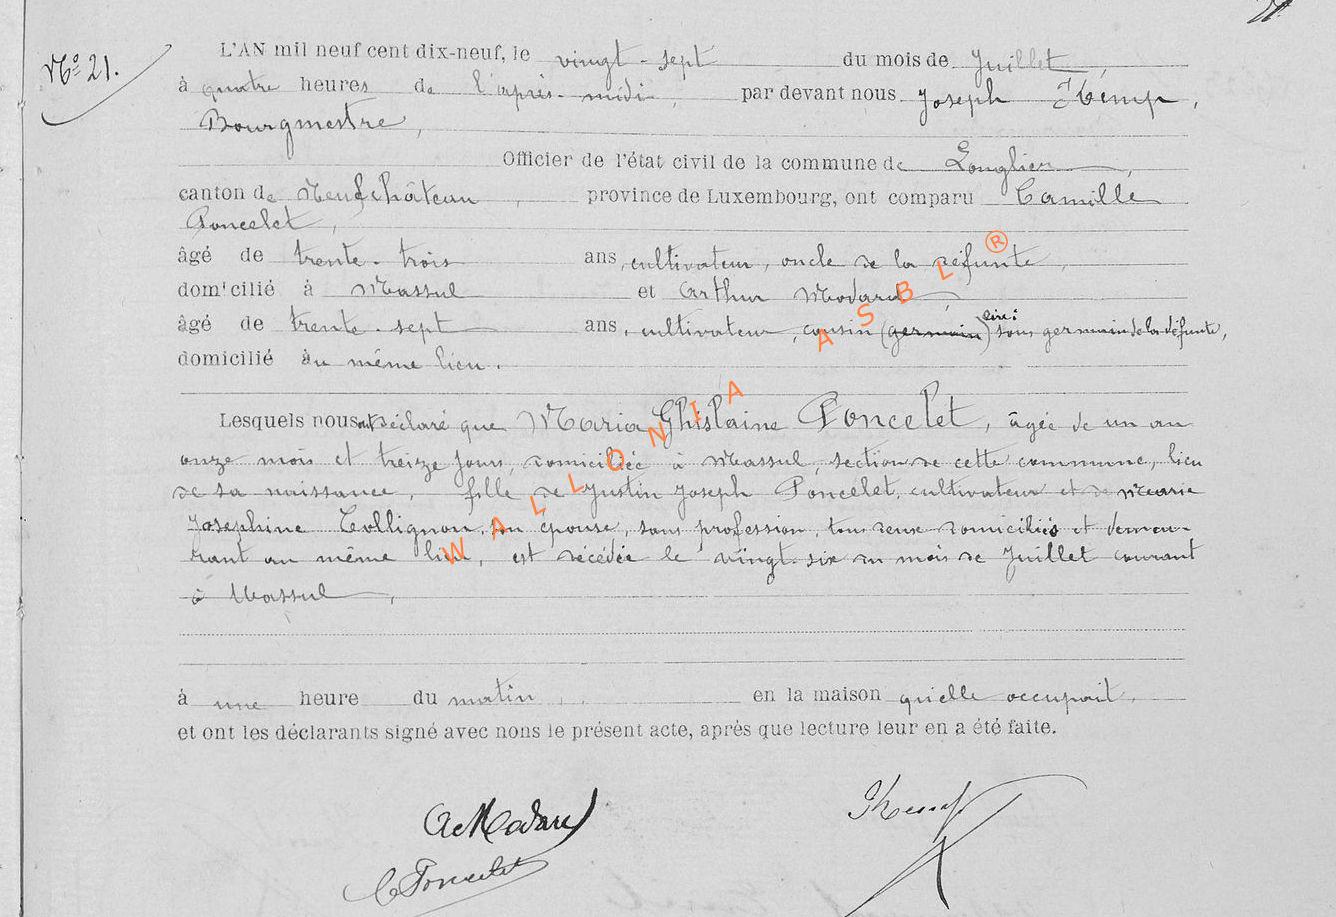 Nº 21.
L'AN mil neuf cent dix-neuf, le vingt-sept du mois de Juillet,
à quatre heures de l'après-midi, par devant nous Joseph
Bourgmestre,
Officier de l'état civil de la commune de Longlier,
canton de Neufchâteau, province de Luxembourg, ont comparu Camille
Poncelet,
âgé de trente-trois ans, cultivateur, oncle de la défunte,
domicilié à Massul et Arthur Modard,
âgé de trente-sept ans, cultivateur, cousin (germain) lire: sous germain de la défunte,
domicilié au même lieu.
Lesquels nous ont déclaré que Maria Ghislaine Poncelet, âgée de un an
onze mois et treize jours, domiciliée à Massul, section de cette commune, lieu
de sa naissance, fille de Justin Joseph Poncelet, cultivateur et de Marie
Josephine Collignon, son épouse, sans profession, tous deux domiciliés et demeu-
rant au même lieu, est décédée le vingt-six du mois de Juillet courant
à Massul,
à une heure du matin, en la maison qu'elle occupait,
et ont les déclarants signé avec nous le présent acte, après que lecture leur en a été faite.
A Modard
C Poncelet
WALLONIA ASBL ®